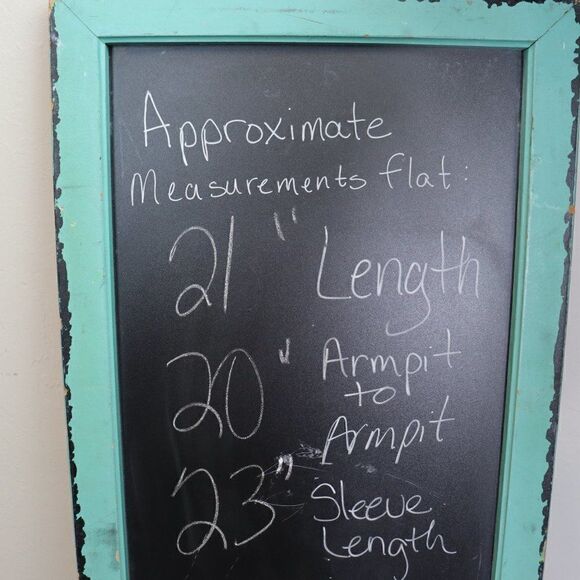 Approximate
Measurements flat:
21" Length
20" Armpit
to
Armpit
23" Sleeve
Length